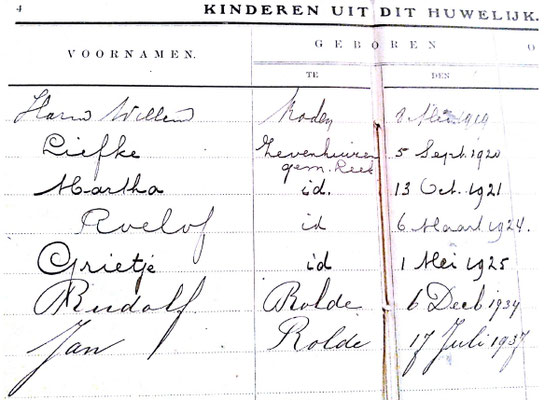 4 KINDEREN UIT DIT HUWELIJK.
VOORNAMEN. GEBOREN O
TE DEN
Harm Willem Roden Mei 1919
Liefke Zevenhuizen 5 Sept. 1920
gem. Leek
Martha id. 13 Oct. 1921
Roelof id 6 Maart 1924.
Grietje id 1 Mei 1925
Rudolf Rolde 6 Decb 1934
Jan Rolde 17 Juli 1937